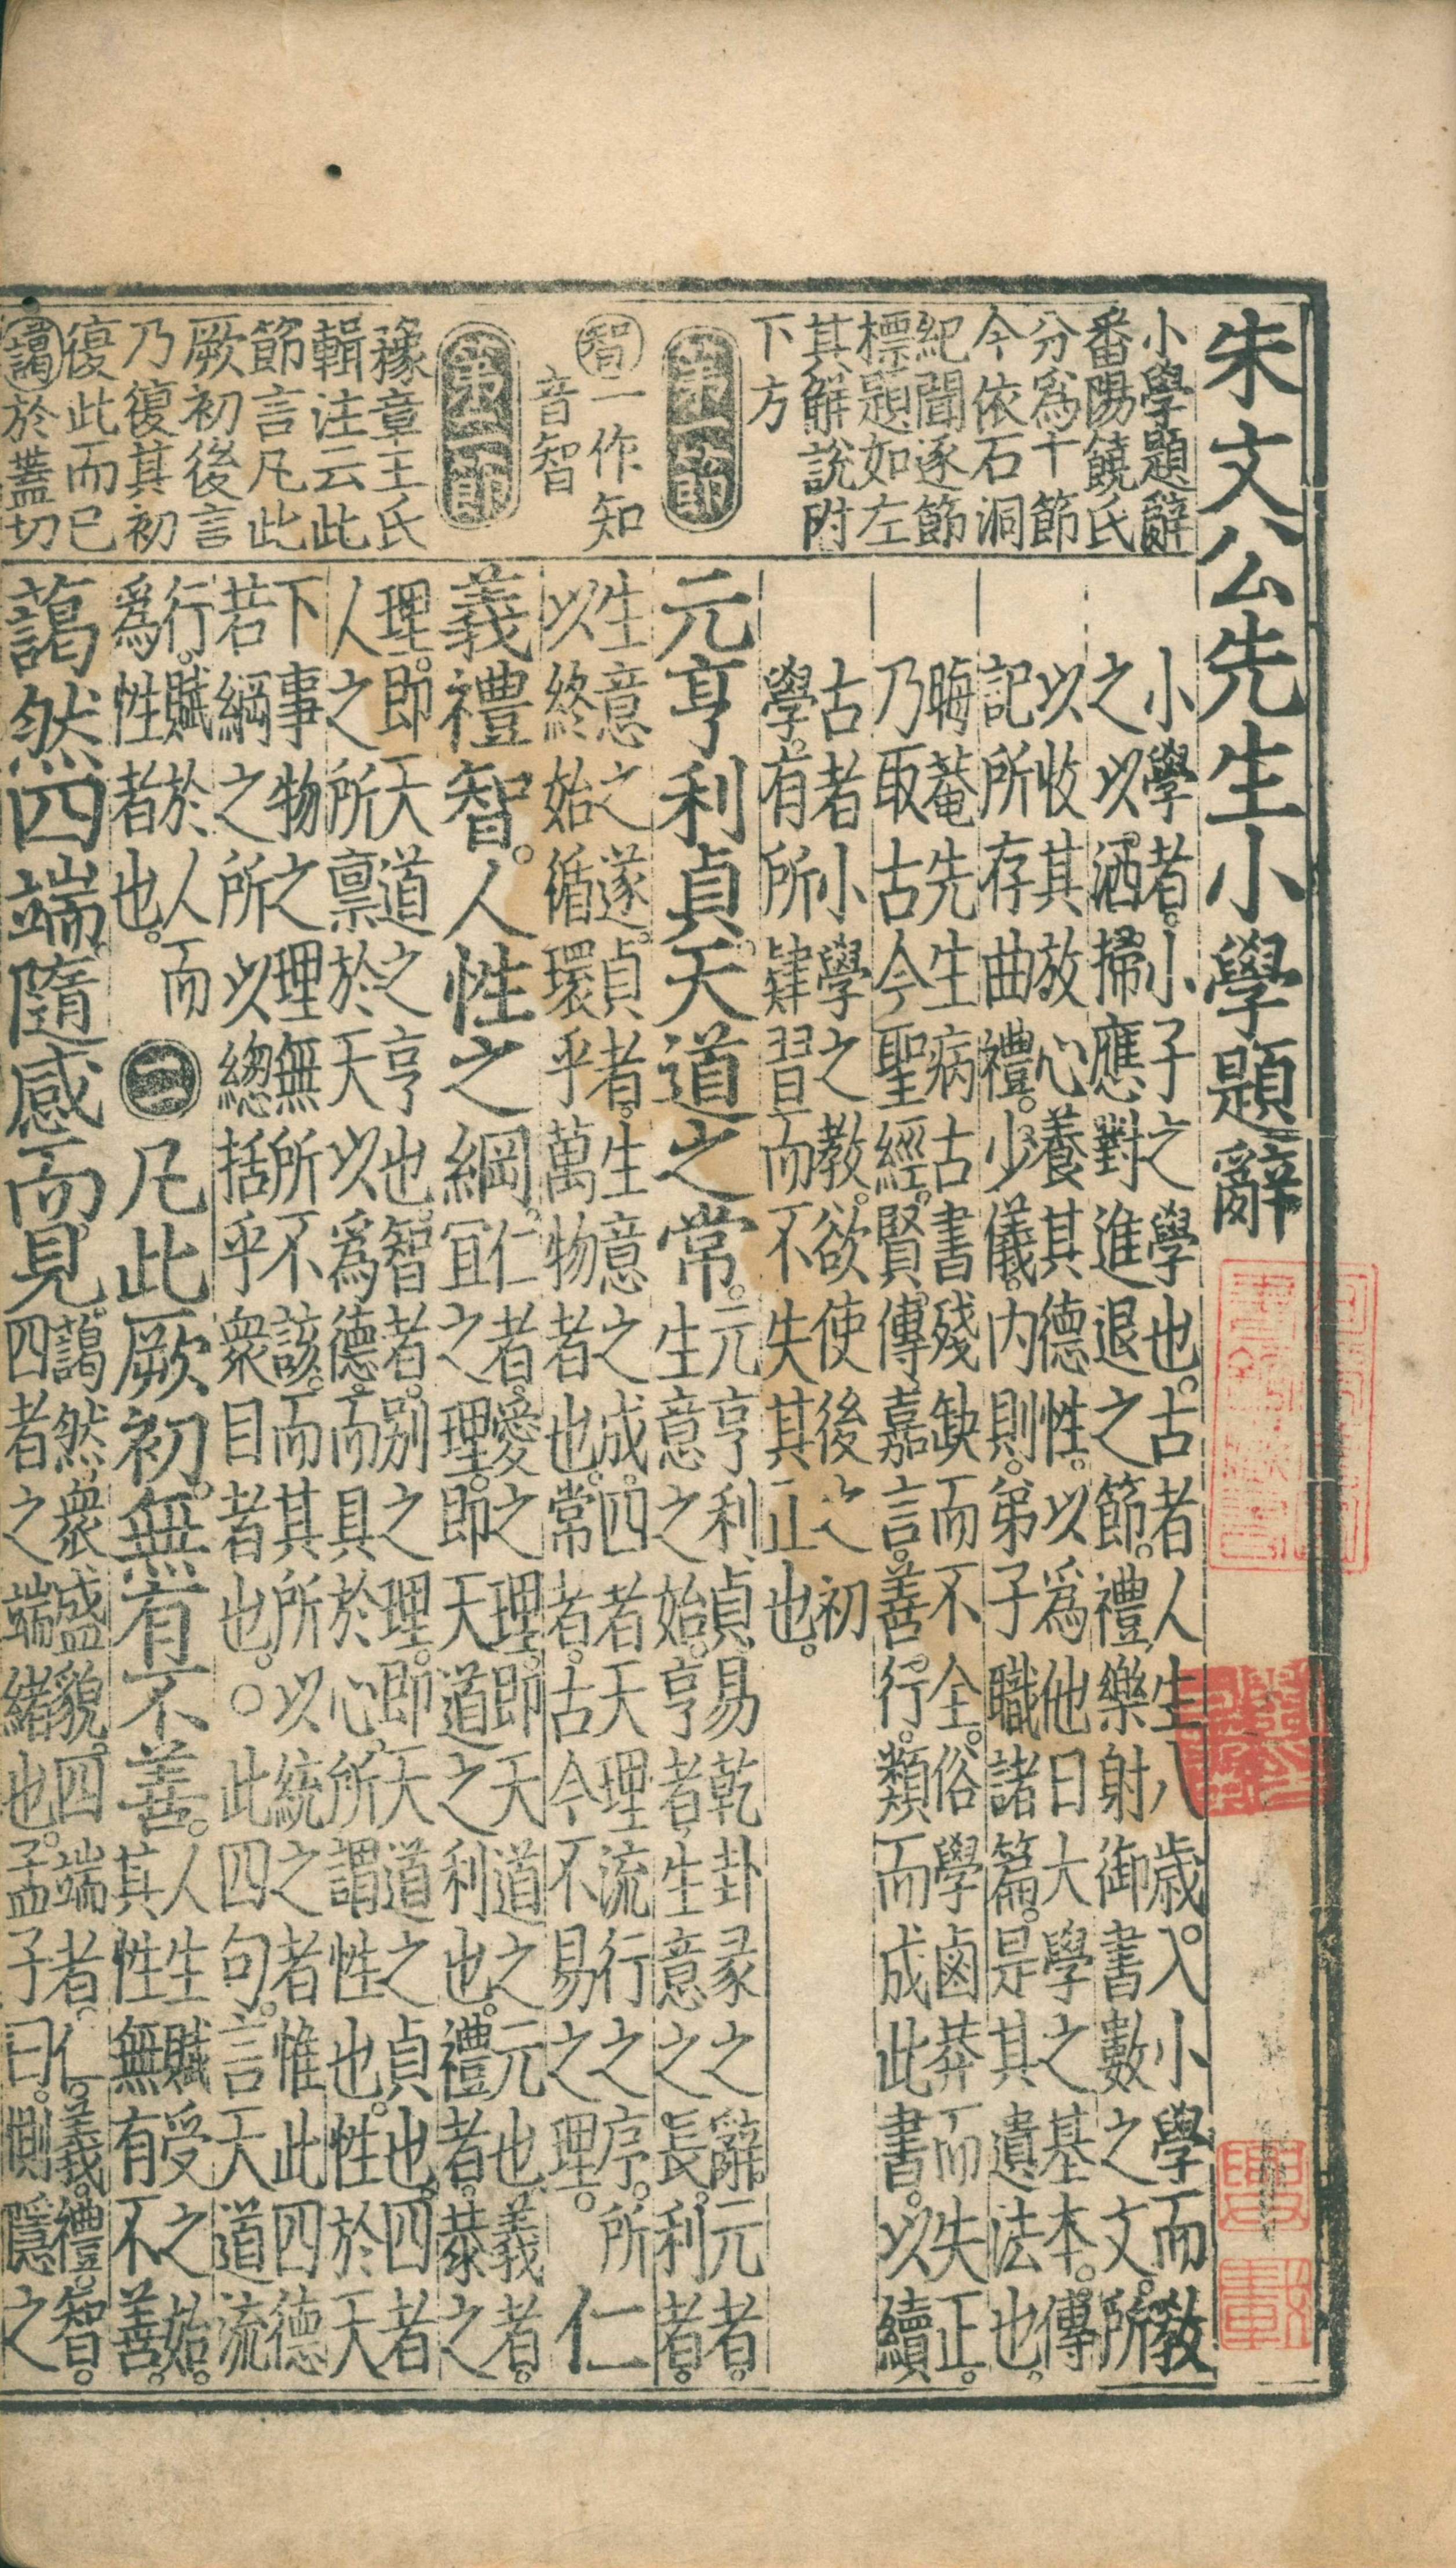 朱文公先生小學題辭
小學題辭
番陽饒氏
分爲十節
今依石洞
紀聞逐節
標題如左
其解說附
下方
小學者。小子之學也。古者人生八歲。入小學而教
之以洒掃應對進退之節。禮樂射御書數之文。所
以收其放心養其德性。以爲他日大學之基本。傳
記所存曲禮。少儀。內則。弟子職諸篇。是其遺法也。
晦菴先生病古書殘缺而不全。俗學鹵莽而失正。
乃取古今聖經。賢傳嘉言。善行。類而成此書。以續
古者小學之教。欲使後之初
學。有所肄習而不失其正也。
第一節
元亨利貞。天道之常。
元亨利貞。易乾卦彖之辭。元者。
生意之始。亨者。生意之長。利者。
智一作知
音智
生意之遂。貞者。生意之成。四者天理流行之序。所
以終始循環乎萬物者也。常者。古今不易之理。
仁
第二節
義禮智。人性之綱。
仁者。愛之理。即天道之元也。義者。
宜之理。即天道之利也。禮者。恭之
豫章王氏
輯注云此
節言凡此
厥初後言
乃復其初
復此而已
理。即天道之亨也。智者。別之理。即天道之貞也。四者
人之所禀於天以爲德。而具於心。所謂性也。性於天
下事物之理無所不該。而其所以統之者。惟此四德
若綱之所以總括乎衆目者也。○此四句。言天道流
行。賦於人而
爲性者也。
二
凡此厥初。無有不善。
人生賦受之始。
其性無有不善。
藹於蓋切
藹然四端。隨感而見。
藹然。衆盛貌。四端者。仁。義。禮。智。
四者之端緒也。孟子曰。惻隱之